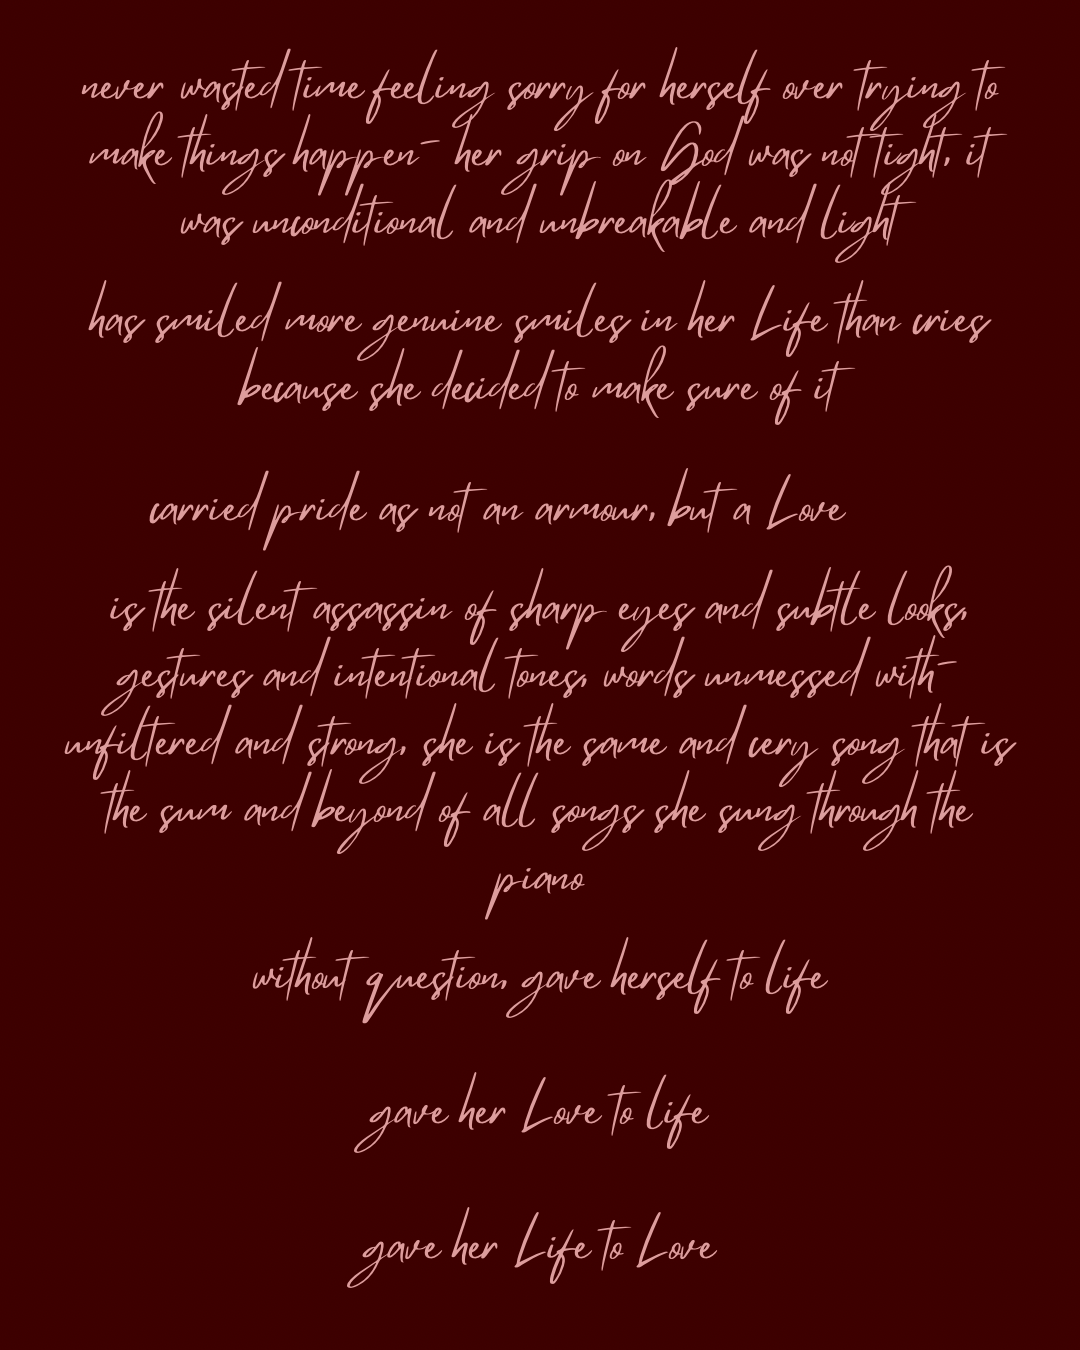 never wasted time feeling sorry for herself over trying to
make things happen- her grip on God was not tight, it
was unconditional and unbreakable and light
has smiled more genuine smiles in her Life than cries
because she decided to make sure of it
carried pride as not an armour, but a Love
is the silent assassin of sharp eyes and subtle looks,
gestures and intentional tones, words unmessed with-
unfiltered and strong, she is the same and very song that is
the sum and beyond of all songs she sung through the
piano
without question, gave herself to life
gave her Love to life
gave her Life to Love